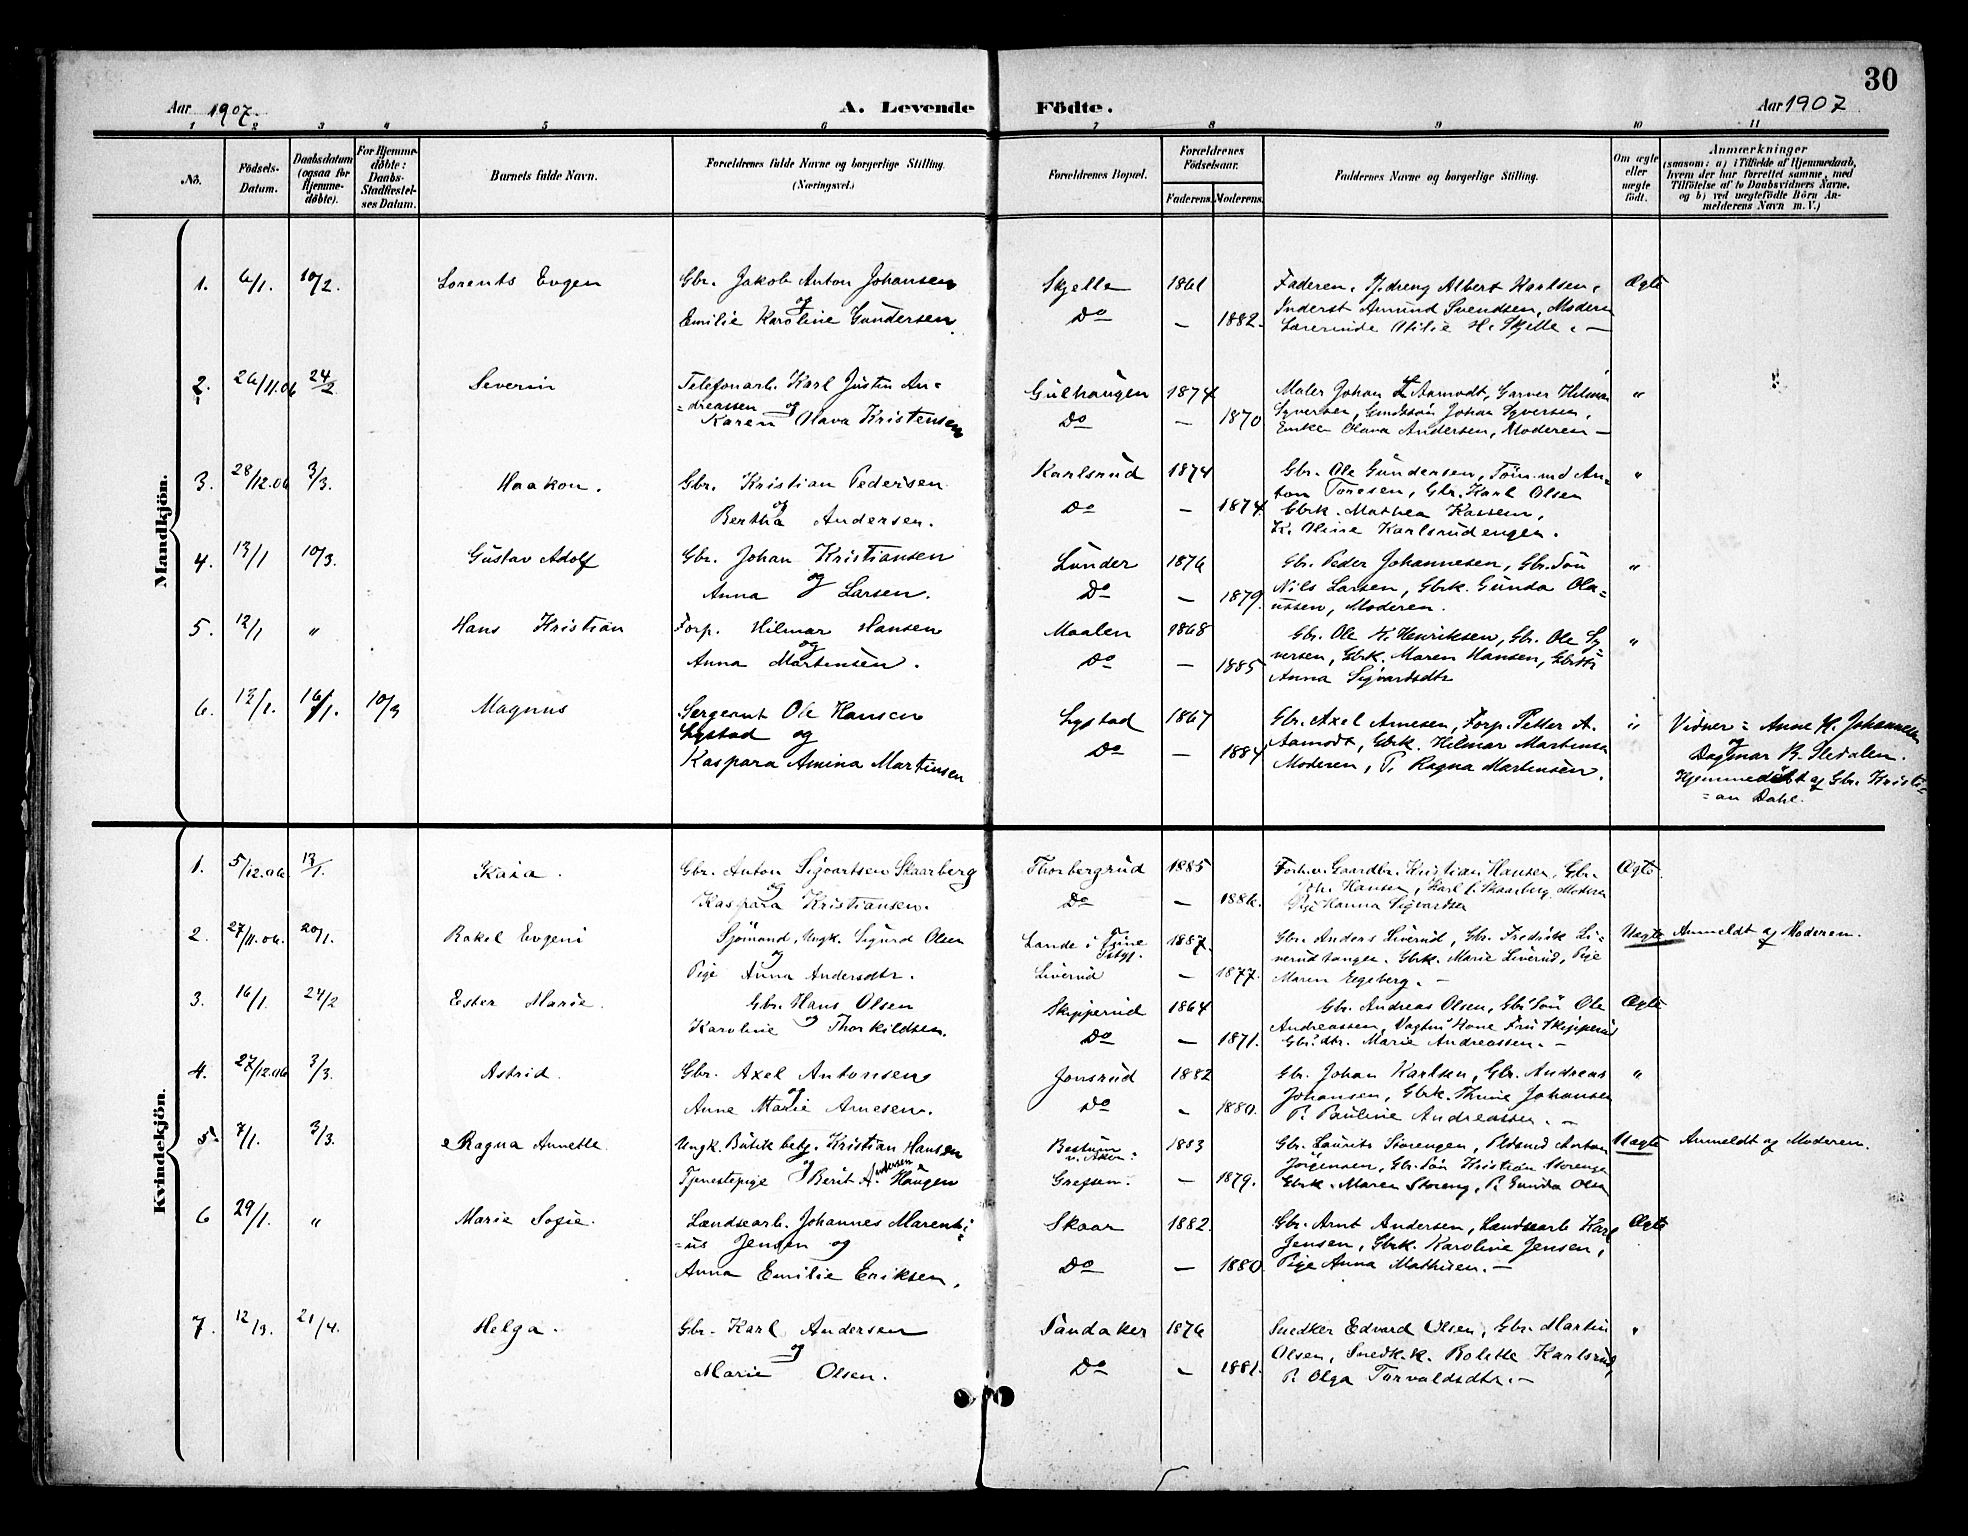 30
Aar 1907.
A. Levende Födte.
Aar 1907
1 2 3 4 5 6 7 8 9 10 11
No.
Födsels-Datum.
Daabsdatum (ogsaa for Hjemmedöbte).
For Hjemmedöbte: Daabs-Stadfæstelses Datum.
Barnets fulde Navn.
Forældrenes fulde Navne og borgerlige Stilling. (Næringsvei.)
Forældrenes Bopæl.
Forældrenes Födselsaar.
Faderens. Moderens.
Faddernes Navne og borgerlige Stilling.
Om ægte eller uægte födt.
Anmærkninger
(saasom: a) i Tilfælde af Hjemmedaab, hvem der har forrettet samme, med Tilföielse af to Daabsvidners Navne, og b) ved uægtefödte Börn Anmelderens Navn m. V.)
Mandkjön.
1. 6/1. 10/2. Lorents Evgen Gbr. Jakob Anton Johansen Skjelle 1861 Faderen, Albert Karlsen, Ægte
og
Emilie Karoline Gundersen Do — 1882. Inderst Amund Svendsen, Moderen
Lærerinde Otilie H. Skjelle. —
2. 26/11.06 24/2 Severin Telefonarb. Karl Justin An- Gulhaugen 1874 Maler Johan Aamodt, Garver Hilmar "
=dreassen og
Karen Olava Kristensen Do — 1870 Syversen, Johan Syversen,
Enke Olava Andersen, Moderen —
3. 28/12.06 3/3. Haakon. Gbr. Kristian Pedersen Karlsrud 1874 Gbr. Ole Gundersen, Tömmd An- "
og ton Toresen, Gbr. Karl Olsen
Bertha Andersen. Do — 1874. Gbrk. Mathea
K. Oline Karlsrudengen.
4. 13/1 10/3. Gustav Adolf Gbr. Johan Kristiansen Lunder 1876 Gbr. Peder Johannesen, Gbr. Sön "
og
Anna Larsen. Do — 1879. Nils Larsen, Gbrk. Gunda Ola-
ussen, Moderen.
5. 12/1 " Hans Kristian Forp. Hilmar Hansen Maalen 1868 Gbr. Ole K. Henriksen, Gbr. Ole Sy- "
og
Anna Martinsen. Do — 1885 versen, Gbrk. Maren Hansen,
Anna Sigvardsdtr
6. 13/1. 16/1. 10/3 Magnus Sergeant Ole Hansen Lystad 1867 Gbr. Axel Arnesen, Forp. Petter A. " Vidner: Anne H. Johannesen
Lystad og Do — 1884 Aamodt, Gbrk. Hilmar Martinsen og Dagmar B.
Kaspara Amina Martinsen Moderen, P. Ragna Martinsen. Hjemmedöbt af Gbr. Kristi-
=an Dahl.
Kvindekjön.
1. 5/12.06. 13/1. Kaia. Gbr. Anton Sigvartsen Skaarberg Thorbergrud 1885 Forh.v. Gaardbr. Kristian Hansen, Gbr. Ægte.
og
Kaspara Kristiansen. Do — 1886. Hansen, Karl Skaarberg, Moderen
Pige Hanna Sigvardsen
2. 27/11.06. 20/1. Rakel Evgeni Sjömand, Ungk. Sigurd Olsen Lande i Tune 1887. Gbr. Anders Liverud, Gbr. Fredrik Li- Uægte Anmeldt af Moderen.
og
Pige Anna Andersdtr. Liverud — 1877. verud tangen. Gbrk. Marie Liverud, Pige
Maren Egeberg. —
3. 16/1. 24/2 Ester Marie. Gbr. Hans Olsen Skipperud 1864 Gbr. Andreas Olsen, Gbr. Sön Ole Ægte
Karoline og Thorkildsen. Do — 1871. Andreassen, Kone Fru Skipperud
Gbr. dtr. Marie Andreassen. —
4. 27/12.06 3/3. Astrid. Gbr. Axel Antonsen Jonsrud 1882 Gbr. Johan Karlsen, Gbr. Andreas "
og
Anne Marie Arnesen. Do — 1880. Johansen, Gbrk. Thrine Johansen
P. Pauline Andreassen. —
5. 7/1. 3/3. Ragna Annette. Ungk. Butikbetj. Kristian Hansen Bestum 1883 Gbr. Laurits Storengen, Anton Uægte Anmeldt af Moderen.
v. Aker. Jörgensen, Gbr. Sön Kristian Storengen
Tjenestepige og Berit A. Andersen Haugen Grefsen. — 1879. Gbrk. Maren Storeng, P. Gunda Olsen
6 29/1. " Marie Sofie. Lændsearb. Johannes Marenti- Skaar 1882. Gbr. Arnt Andersen, Lændsearb Karl Ægte
=us Jensen og Jensen, Gbrk. Karoline Jensen,
Anna Emilie Eriksen. Do — 1880. Pige Anna Mathisen. —
7. 12/3. 21/4. Helga. Gbr. Karl Andersen Sandaker 1876 Snedker Edvard Olsen, Gbr. Martin "
og
Marie Olsen. Do — 1881. Olsen, Snedk.k. Bolette Karlsrud,
P. Olga Torvaldsdtr. —